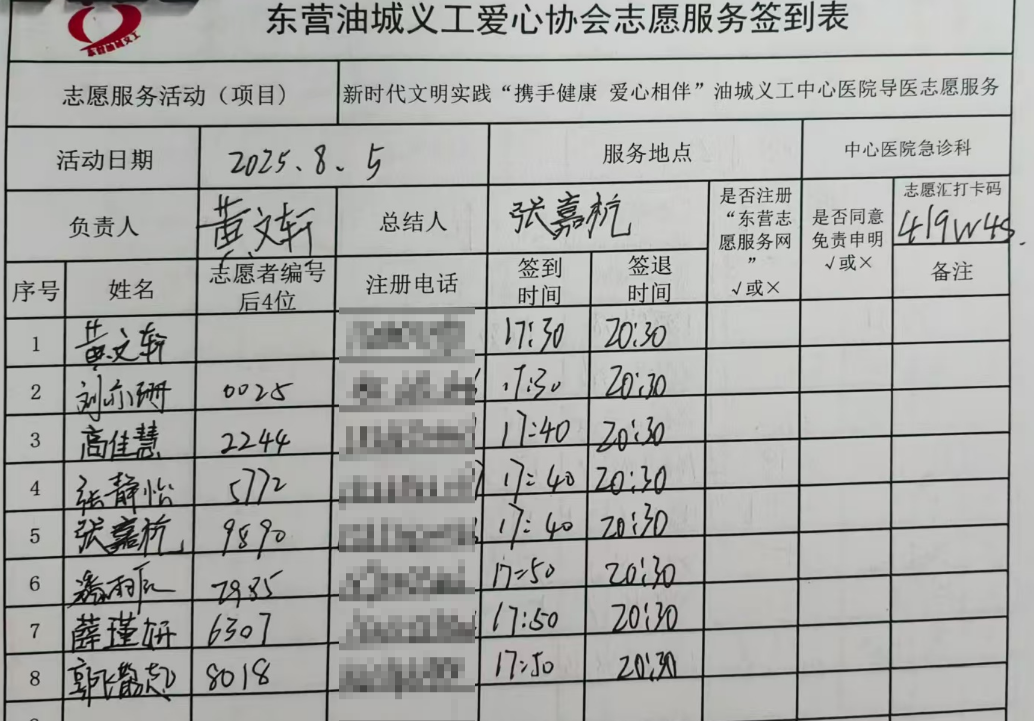 东营油城义工爱心协会志愿服务签到表
志愿服务活动（项目） 新时代文明实践“携手健康 爱心相伴”油城义工中心医院导医志愿服务
活动日期 2025.8.5 服务地点 中心医院急诊科
负责人 黄文轩 总结人 张嘉杭 是否注册“东营志愿服务网”√或× 是否同意免责申明√或× 志愿汇打卡码 419W4S
序号 姓名 志愿者编号后4位 注册电话 签到时间 签退时间 备注
1 黄文轩 17:30 20:30
2 刘亦珊 0025 17:30 20:30
3 高佳慧 2244 17:40 20:30
4 张静怡 5772 17:40 20:30
5 张嘉杭 9890 17:40 20:30
6 2935 17:50 20:30
7 薛瑾妍 6307 17:50 20:30
8 8018 17:50 20:30